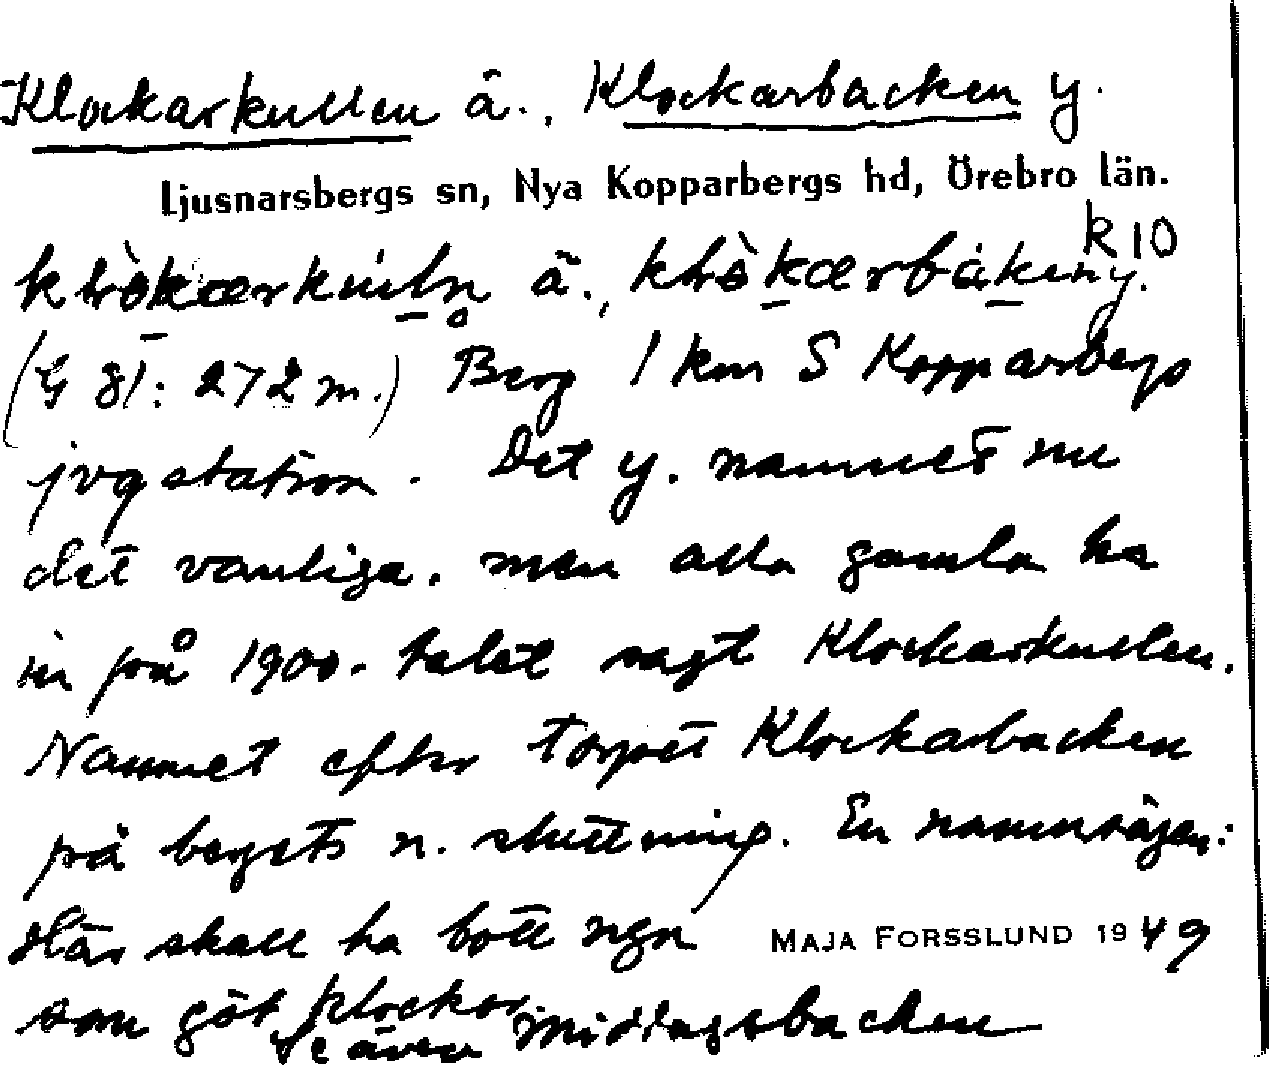 Klockarkullen ä., Klockarbacken y.
Ljusnarsbergs sn, Nya Kopparbergs hd, Örebro län.
k 10
ä., y.
(G 81: 272 m.) Berg 1 km S Kopparbergs
jvgstation. Det y. namnet nu
det vanliga, men alla gamla ha
in på 1900-talet sagt Klockarkullen.
Namnet efter torpet Klockarbacken
på bergets n. sluttning. En namnsägen:
Här skall ha bott ngn
MAJA FORSSLUND 1949
som göt klockor
Se även Middagsbacken